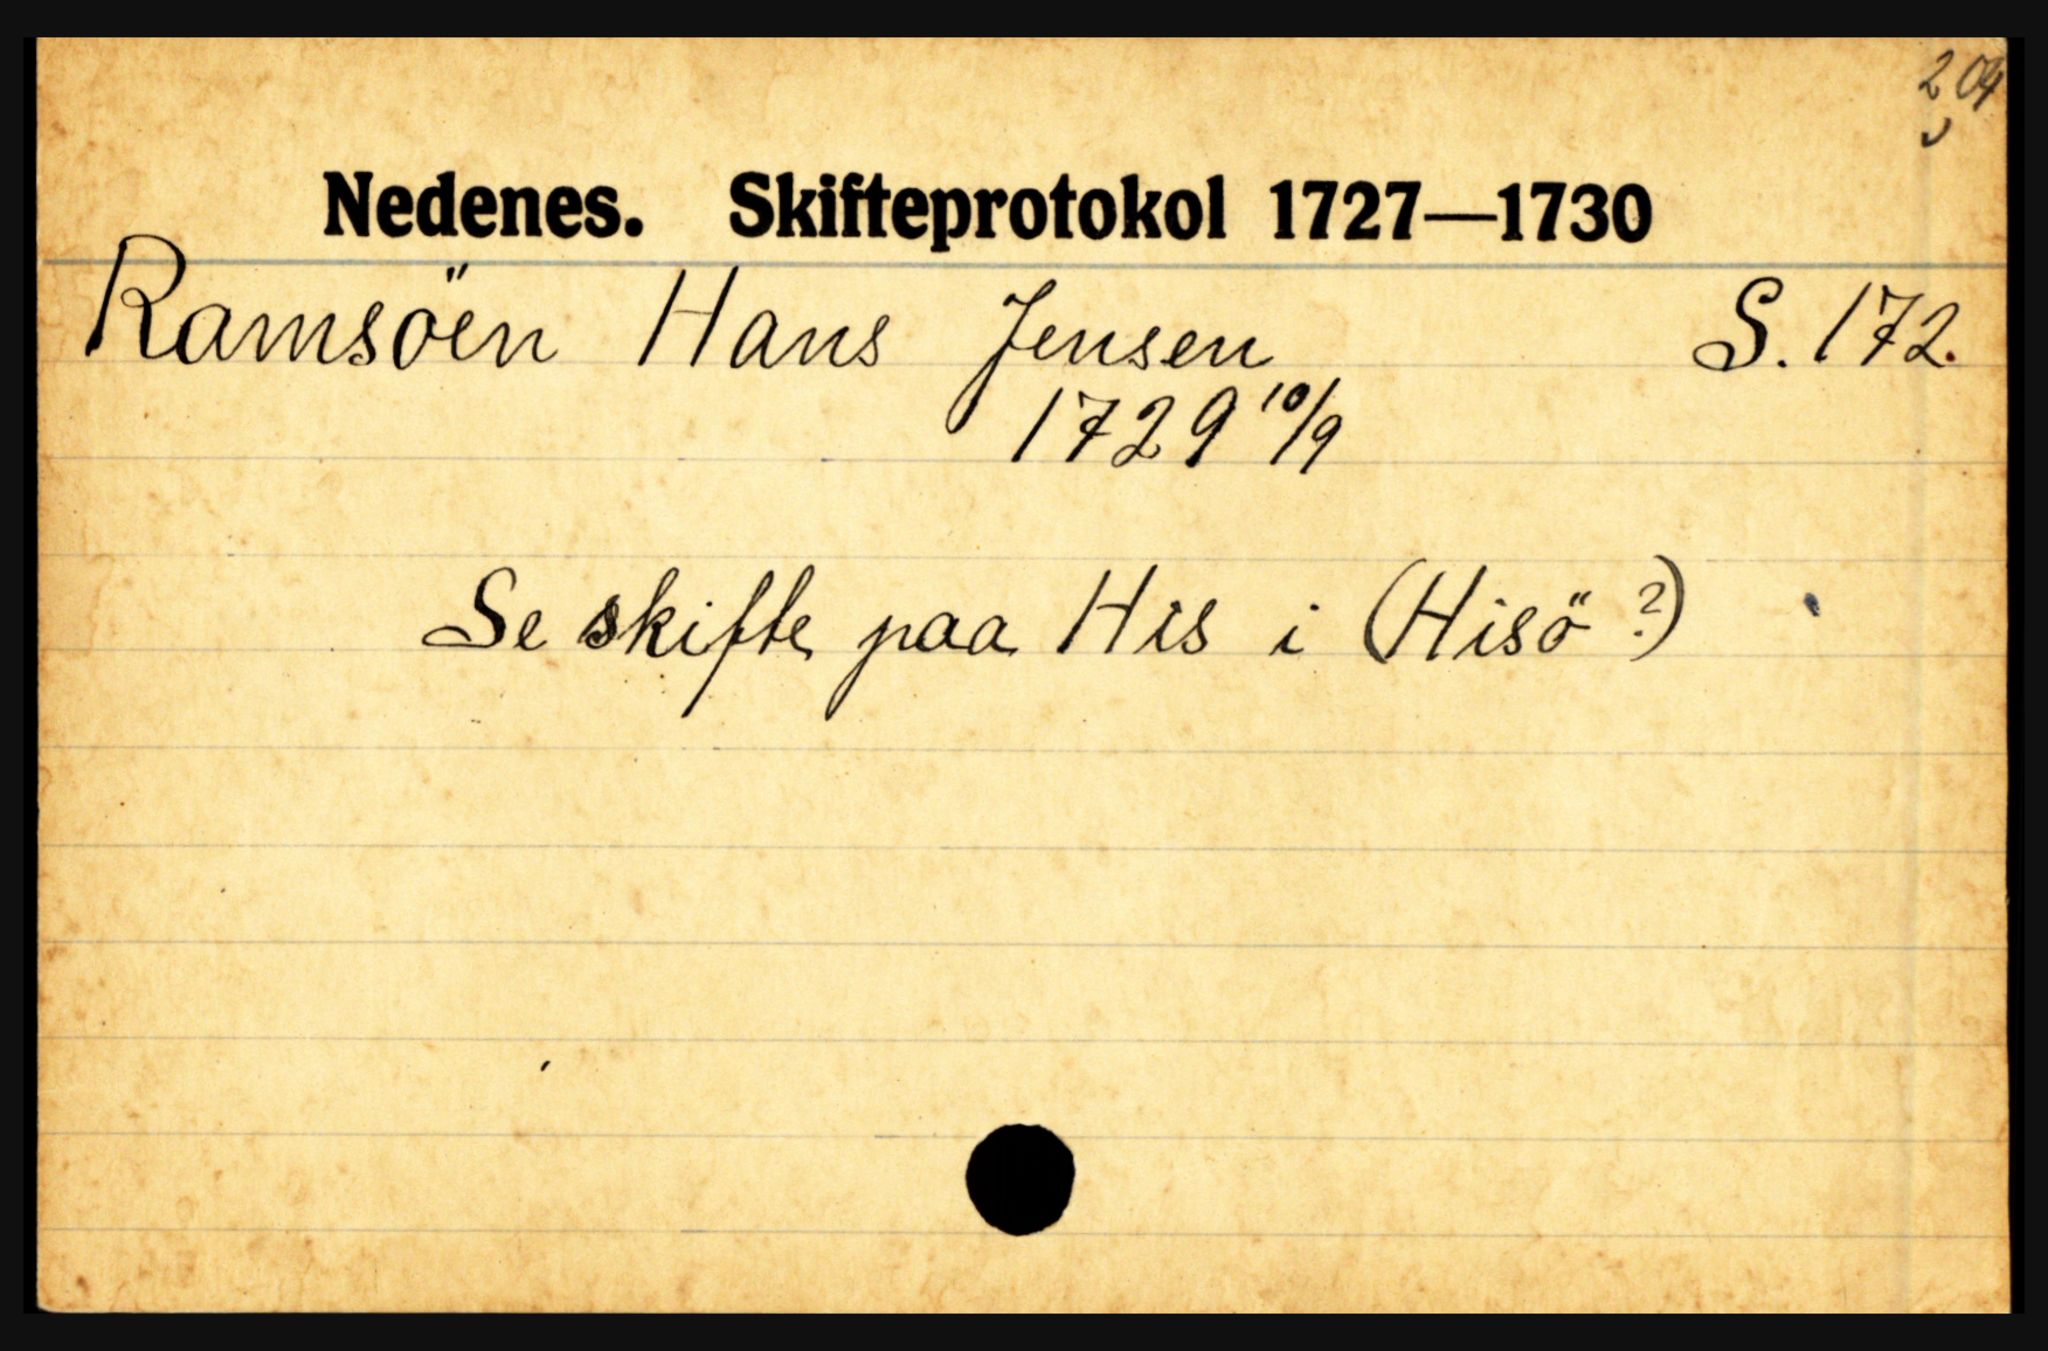 204
Nedenes. Skifteprotokol 1727—1730
Ramsöen Hans Jensen S. 172.
1729 10/9
Se skifte paa His i (Hisö?)